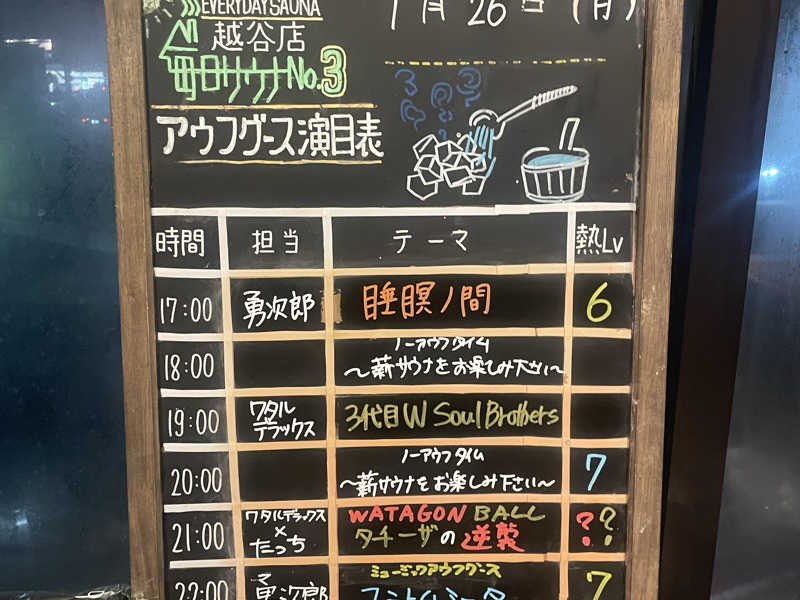 EVERYDAY SAUNA
1月26日(月)
越谷店
毎日サウナNo.3
アウフグース演目表
時間 担当 テーマ 熱Lv
17:00 勇次郎 睡瞑ノ間 6
18:00 ノーアウフタイム
～薪サウナをお楽しみ下さい～
19:00 ワタル
デラックス 3代目W Soul Brothers
20:00 ノーアウフタイム 7
～薪サウナをお楽しみ下さい～
21:00 ワタルデラックス WATAGON BALL ??
× タチーザの逆襲
たっち
ミュージックアウフグース
22:00 勇次郎 7